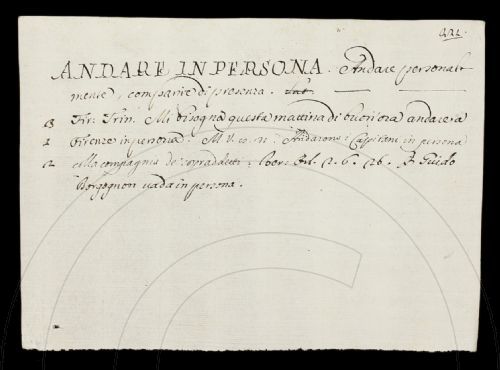 ANDARE IN PERSONA. Andare personal=
mente, comparire di presenza. Lat.
3 Fir: Trin. Mi bisogna questa mattina di buon'ora andare a
1 Firenze in persona. M. V. Andarono i Capitani in persona
2 alla compagnia de' sopraddetti. Boez: 2. 6. 26. Guido
Borgognon vada in persona.